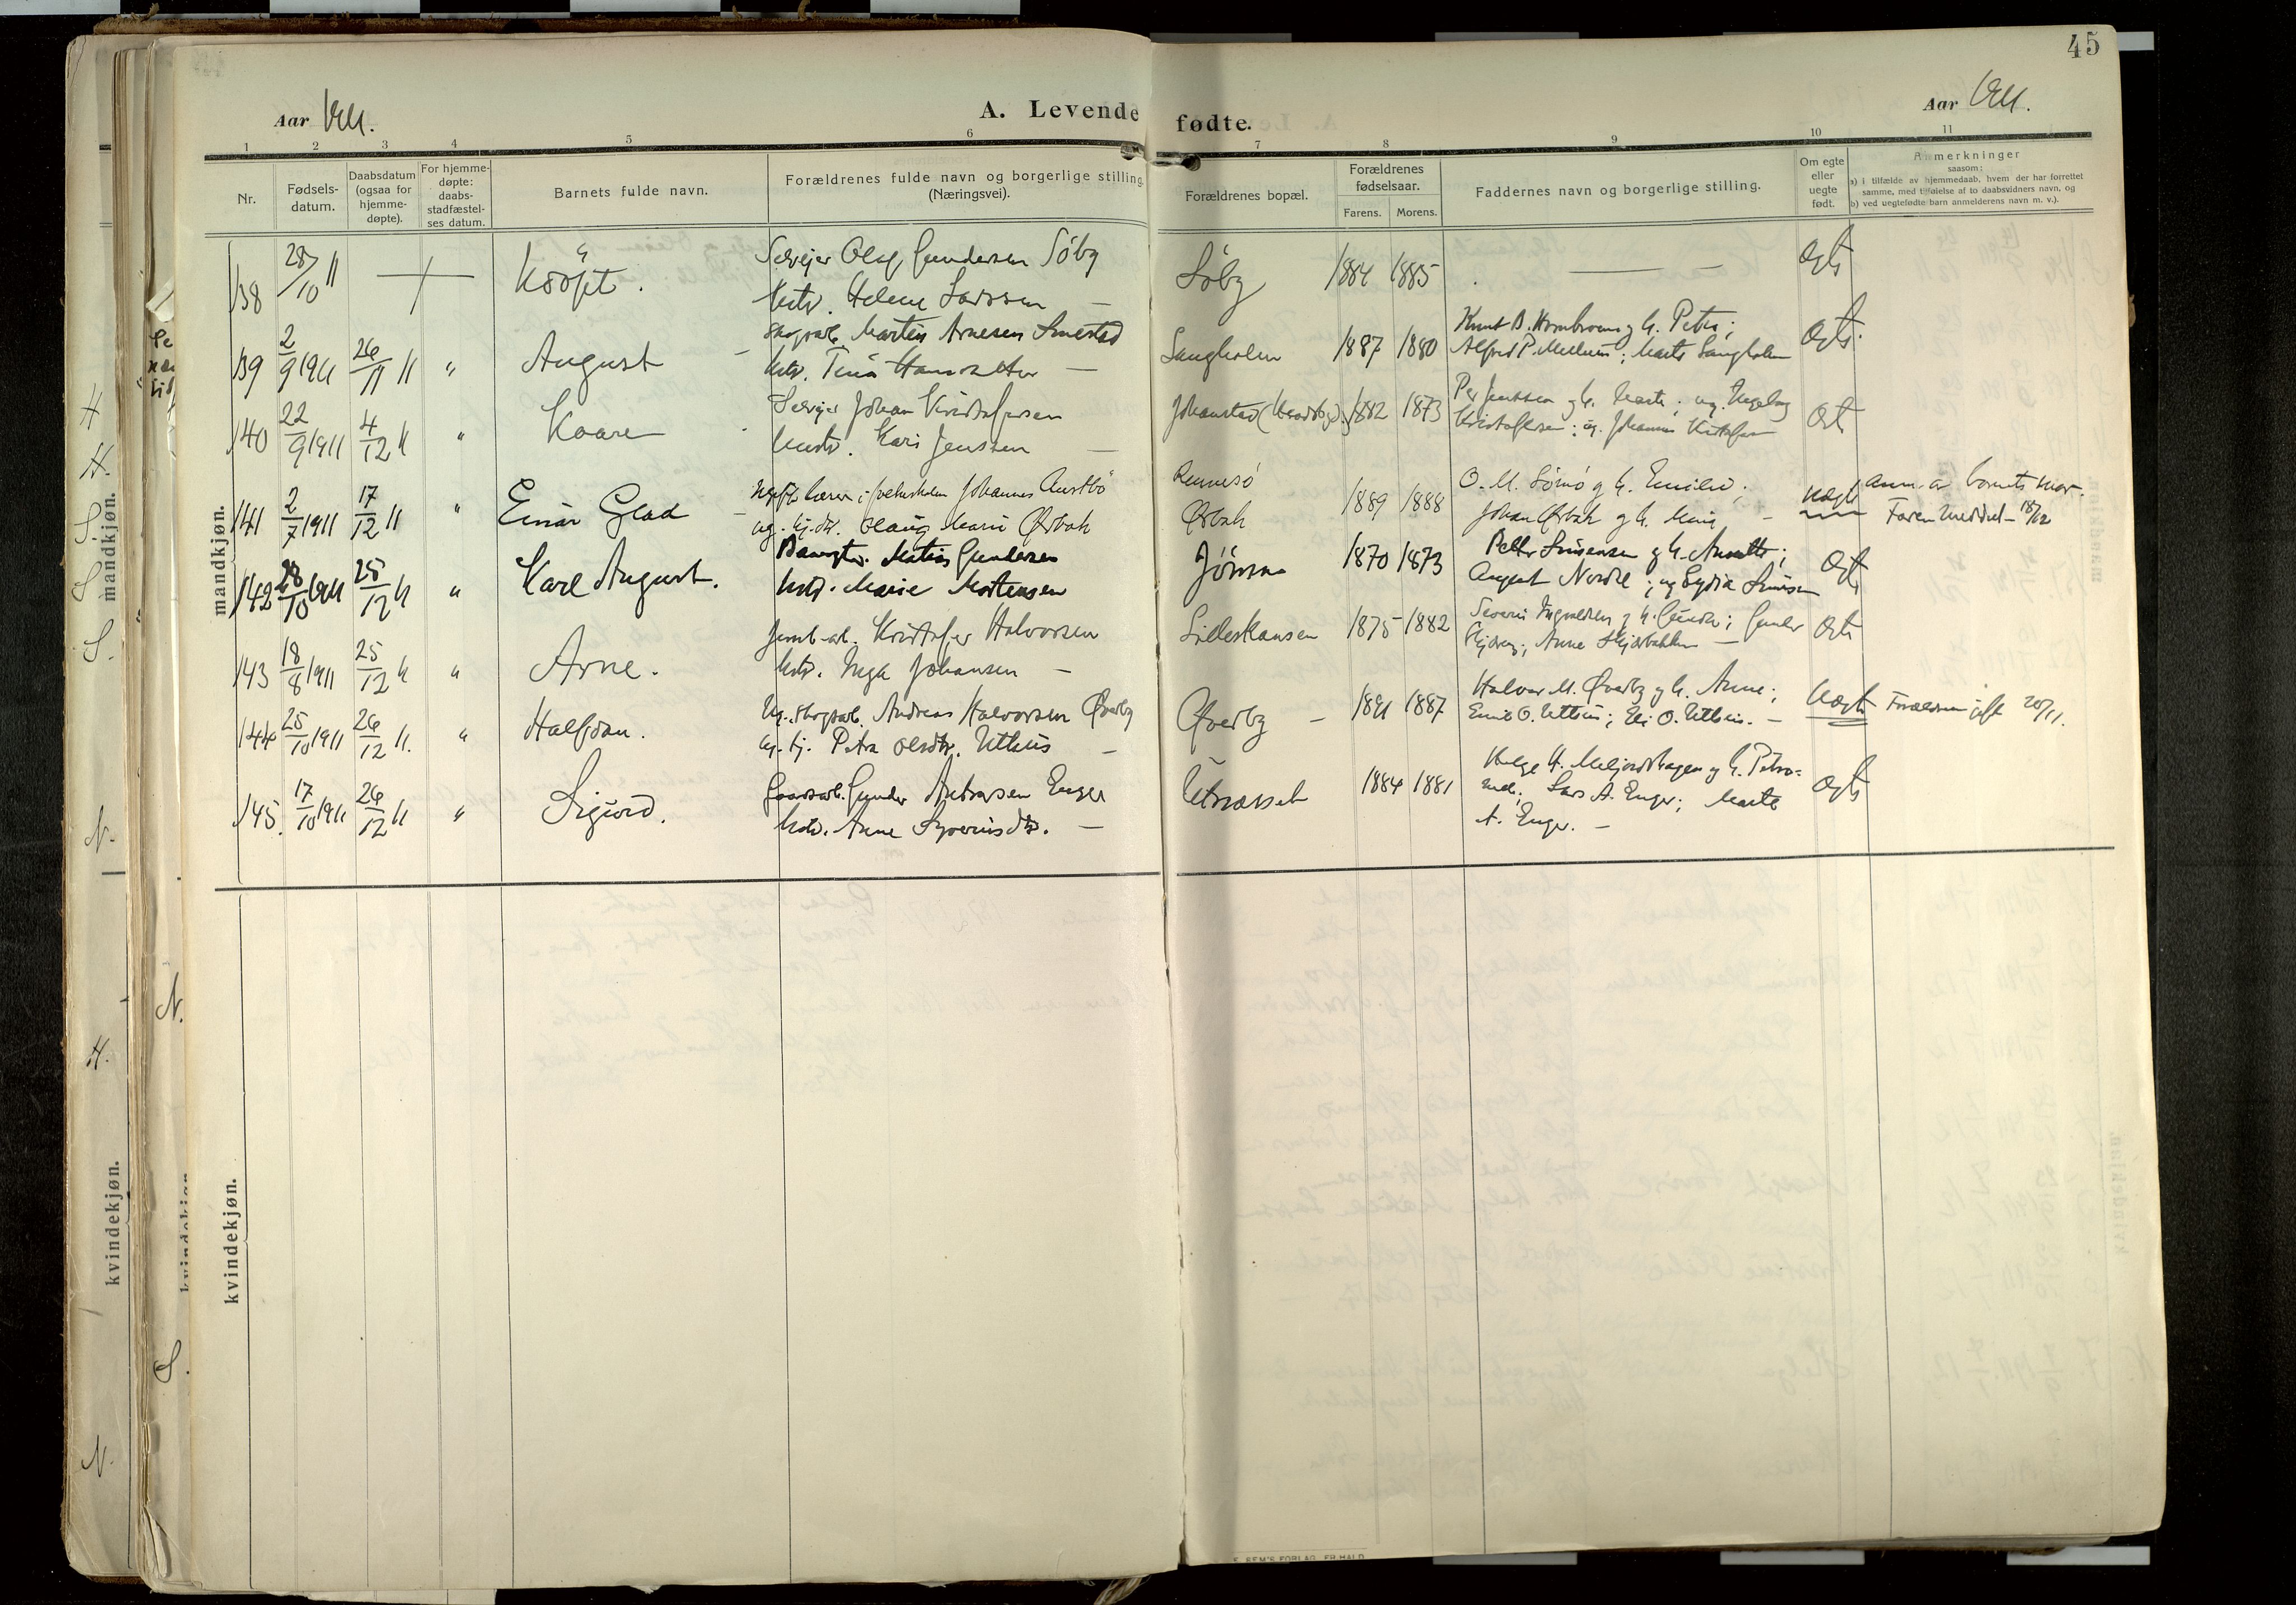 45
Aar 1911.
A. Levende
fødte.
Aar 1911.
1 2 3 4 5 6 7 8 9 10 11
Nr.
Fødsels-
datum.
Daabsdatum
(ogsaa for
hjemme-
døpte).
For hjemme-
døpte:
daabs-
stadfæstel-
ses datum.
Barnets fulde navn.
Forældrenes fulde navn og borgerlige stilling.
(Næringsvei).
Forældrenes bopæl.
Forældrenes
fødselsaar.
Farens. Morens.
Faddernes navn og borgerlige stilling.
Om egte
eller
uegte
født.
Anmerkninger
saasom:
a) i tilfælde av hjemmedaab, hvem der har forrettet
samme, med tilføielse af to daabsvidners navn, og
b) ved uegtefødte barn anmelderens navn m. v.).
mandkjøn.
138 28/10 11 — Udöpt. Selveier Olaf Gundersen Söby
Hstr. Helene Larssen —
Söby 1884 1885 — — Egte
139 2/9 1911 26/11 11 " August Skogsarb. Martin Arnesen Smestad
Hstr. —
Langholen 1887 1880 Knut B. g h. Petra;
Alfred P. ; Marte Langholen Egte.
140 22/9 1911 4/12 11 " Kaare Selveier Johan Kristofersen
Hustr. Kari Jensen —
Johanstad 1882 1873 Per Jensen g h. Marte; ug. Ingeborg
Kristofersen; ug. Johannes Kristofersen Egte
141 2/7 1911 17/12 11 " Einar Glad Ugift lærer i folkeskolen Johannes Austbö
ug. tj. dtr. Olaug Marie Ørbak
Rennesö
Ørbak 1889 1888 O. M. Sörmo g h. Emilie;
Johan Ørbak g h. — Uegte
Anm. av barnets mor.
Faren meddel— 18/12
142 28/10 1911 25/12 11 " Karl August. Banvgt. Matias Gundersen
Hstr. Marie Mortensen
1870 1873 Petter Simensen g h. Anette;
August ; ug Lydia Simensen Egte
143 18/8 1911 25/12 11 " Arne. Jernb.arb. Kristofer Halvorsen
Hstr. Inga Johansen —
Lilleskansen 1875 1882 Severin Ingvaldsen g h. ; Gunder
; Anne Skjærbækken — Egte
144 25/10 1911 26/12 11. " Halfdan. Ug. skogsarb. Andreas Halvorsen Øverby
ug. tj. Petra Olsdtr. Uthus —
Øverby — 1891 1887 Halvor M. Øverby g h. Anne;
Emil O. Uthus; Eli O. Uthus. — Uegte Forældrene gift 20/11.
145. 17/10 1911 26/12 11 " Sigurd. Gaardarb. Gunder Andersen Enger
Hstr. Anne Syverinsdtr. —
1884 1881 Helge H. g h. Petro-
nelle; Lars A. Enger; Marte
A. Enger. — Egte
kvindekjøn.
mandkjøn.
kvindekjøn.
H
H.
S.
S
S.
N.
N.
H.
S.
N.